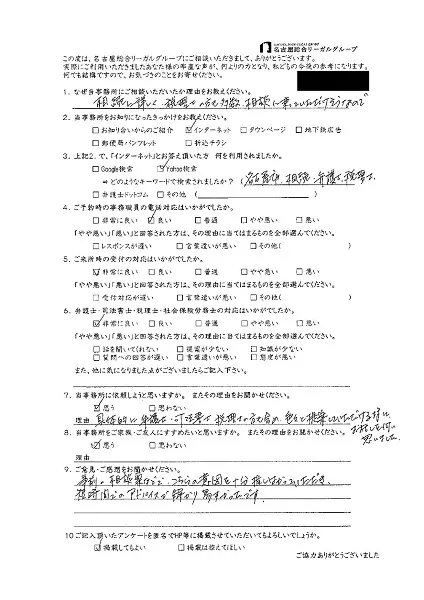 名古屋総合リーガルグループ
この度は、名古屋総合リーガルグループにご相談いただきまして、ありがとうございます。
実際にご利用いただきましたあなた様の率直な声が、何よりの力となり、私どもの今後の参考になります。
何でも結構ですので、お気づきのことをお寄せください。
1. なぜ当事務所にご相談いただいたか理由をお教えください。
相続に詳しく、税理士の方も対応、相談に乗っていただけそうなので
2. 当事務所をお知りになったきっかけをお教えください。
□お知り合いからのご紹介 ☑インターネット □タウンページ □地下鉄広告
□郵便局パンフレット □折込チラシ
3. 上記2. で、「インターネット」とお答え頂いた方 何を利用されましたか。
□Google検索 ☑Yahoo検索
⇒どのようなキーワードで検索されましたか？( 名古屋市、相続、弁護士、税理士 )
□弁護士ドットコム □その他( )
4. ご予約時の事務職員の電話対応はいかがでしたか。
□非常に良い ☑良い □普通 □やや悪い □悪い
「やや悪い」「悪い」と回答された方は、その理由に当てはまるものを全部選んでください。
□レスポンスが遅い □言葉遣いが悪い □その他( )
5. ご来所時の受付の対応はいかがでしたか。
☑非常に良い □良い □普通 □やや悪い □悪い
「やや悪い」「悪い」と回答された方は、その理由に当てはまるものを全部選んでください。
□受付対応が遅い □言葉遣いが悪い □その他( )
6. 弁護士・司法書士・税理士・社会保険労務士の対応はいかがでしたか。
☑非常に良い □良い □普通 □やや悪い □悪い
「やや悪い」「悪い」と回答された方は、その理由に当てはまるものを全部選んでください。
□話を聞いてくれない □提案が少ない □知識が少ない
□質問への回答が遅い □言葉遣いが悪い □態度が悪い
また、他に気になりました点がございましたらご記入下さい。
7. 当事務所に依頼しようと思いますか。 またその理由をお聞かせください。
☑思う □思わない
理由 具体的に弁護士、司法書士、税理士の方も含め、色々と提案していただける様に
思いました。
8. 当事務所をご家族・ご友人にすすめたいと思いますか。 またその理由をお聞かせください。
☑思う □思わない
理由
9. ご意見・ご感想をお聞かせください。
事前の相談票などで、こちらの意図を十分
短時間でのアドバイスで 分かり易すかったです。
10 ご記入頂いたアンケートを匿名でHP等に掲載させていただいてもよろしいでしょうか。
☑掲載してもよい □掲載は控えてほしい
ご協力ありがとうございました